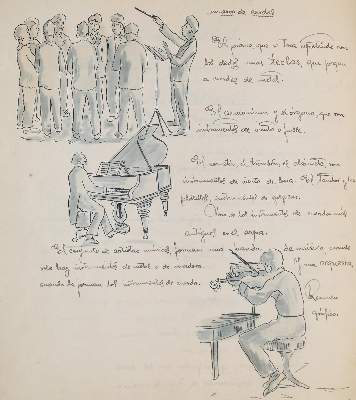 macas de cuerda.
El piano, que se toca apoyando con
los dedos unas teclas, que pegan
a cuerdas de metal.
El armonium y el órgano, que son
instrumentos de viento o fuelle.
El cornetín, el trombón, el clarinete, son
instrumentos de viento de boca. El Tambor y los
platillos, instrumentos de golpear.
Uno de los instrumentos de cuerda más
antiguos es el arpa.
El conjunto de artistas músicos forman una banda de música cuando
solo hay instrumentos de metal o de madera.
Y una orquesta,
cuando la forman los instrumentos de cuerda.
Resumen
gráfico